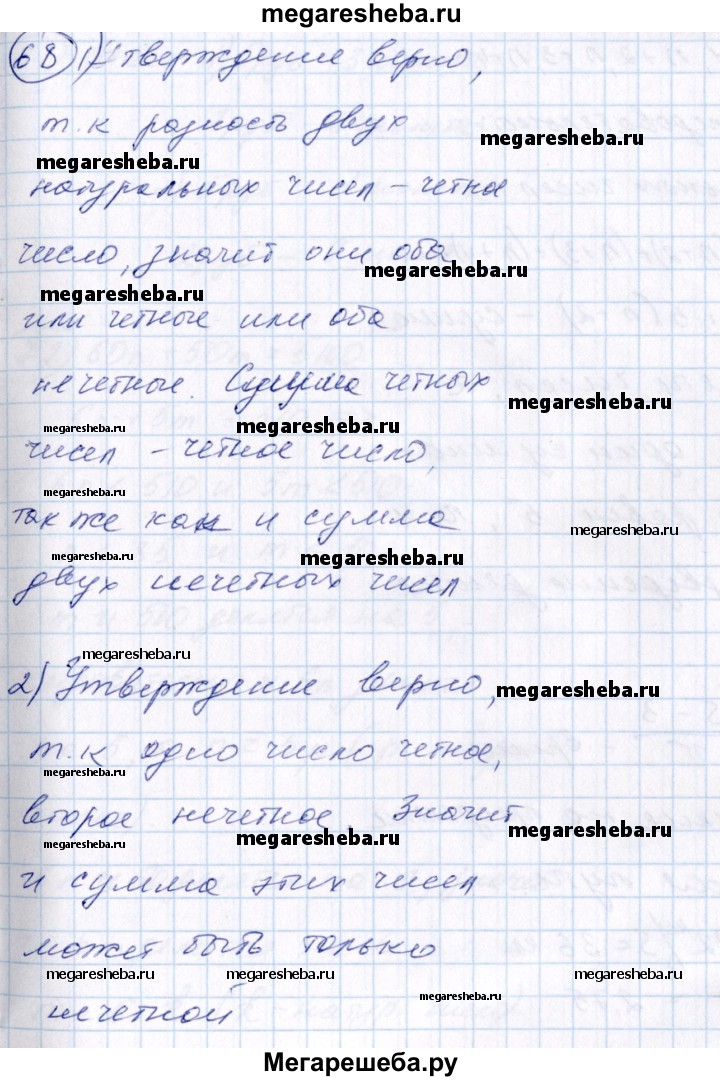 megaresheba.ru
68 1) Утверждение верно,
т.к разность двух
megaresheba.ru
megaresheba.ru
натуральных чисел – четное
число, значит они оба
megaresheba.ru
megaresheba.ru
или четные или оба
нечетные. Сумма четных
megaresheba.ru
megaresheba.ru
megaresheba.ru
чисел – четное число,
megaresheba.ru
так же как и сумма
megaresheba.ru
megaresheba.ru
megaresheba.ru
двух нечетных чисел
megaresheba.ru
megaresheba.ru
2) Утверждение верно,
megaresheba.ru
т.к одно число четное,
megaresheba.ru
второе нечетное. Значит
megaresheba.ru
megaresheba.ru
megaresheba.ru
и сумма этих чисел
может быть только
megaresheba.ru
megaresheba.ru
megaresheba.ru
megaresheba.ru
нечетной
megaresheba.ru
Мегарешеба.ру